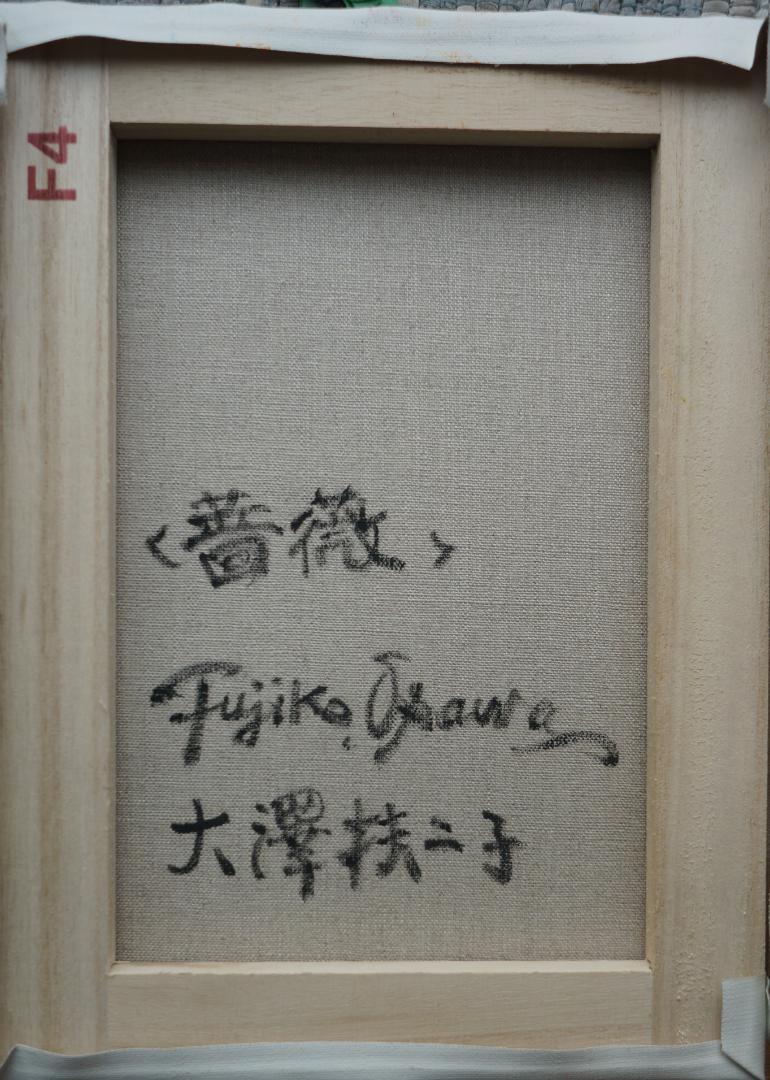 F4
<薔薇>
Fujiko, Ohsawa
大澤扶二子